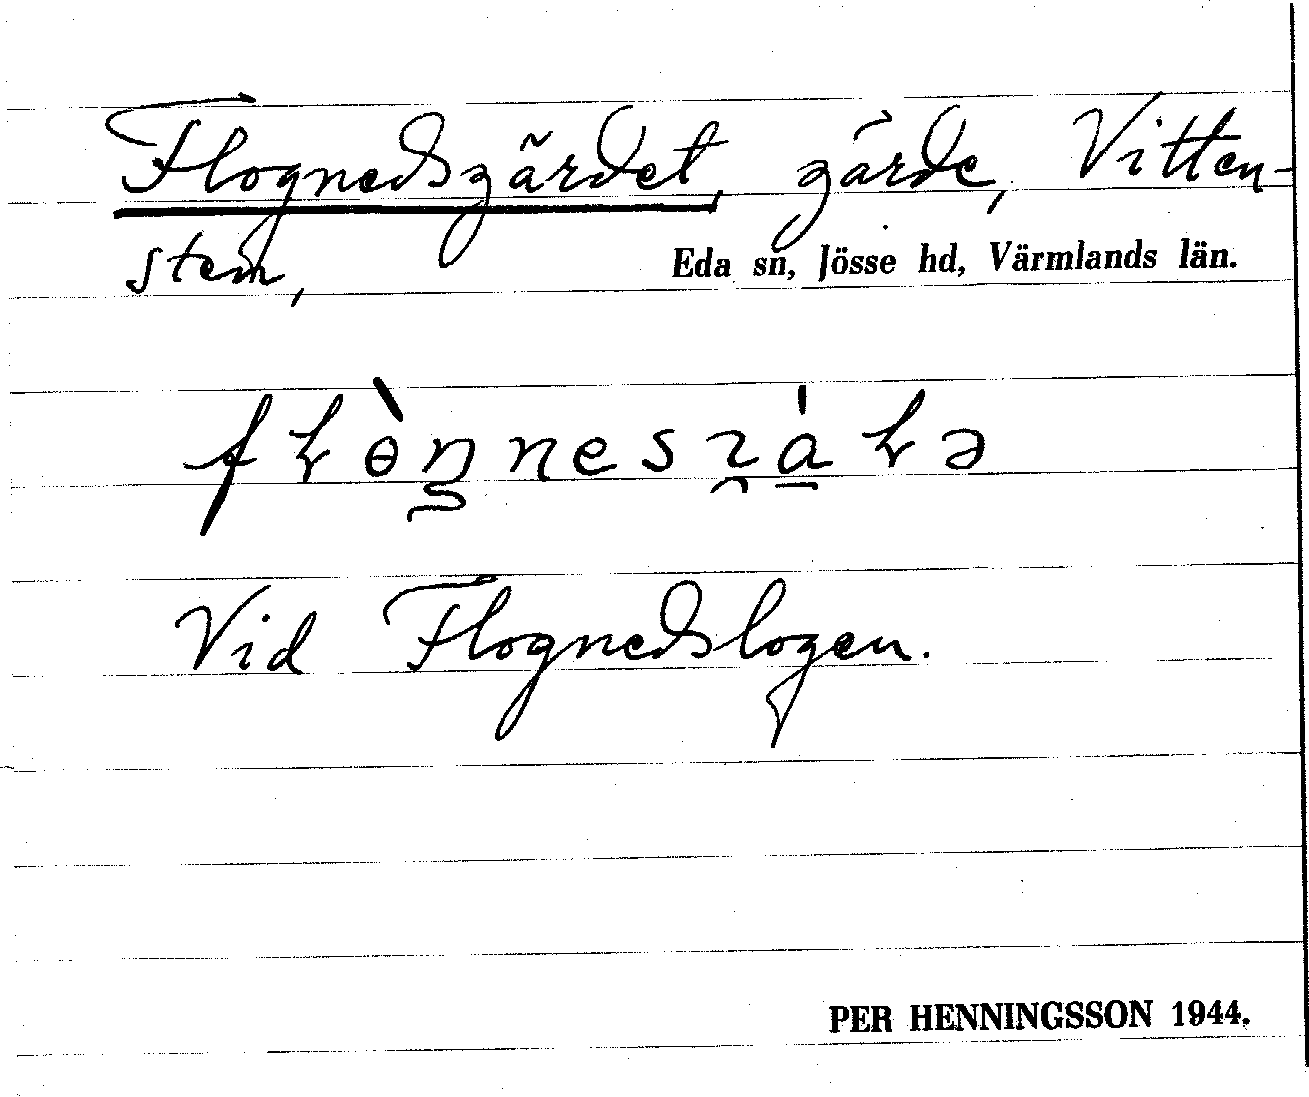 Flognedsgärdet, gärde, Vitten-
sten,
Eda sn, Jösse hd, Värmlands län.
Vid Flognedslogen.
PER HENNINGSSON 1944.